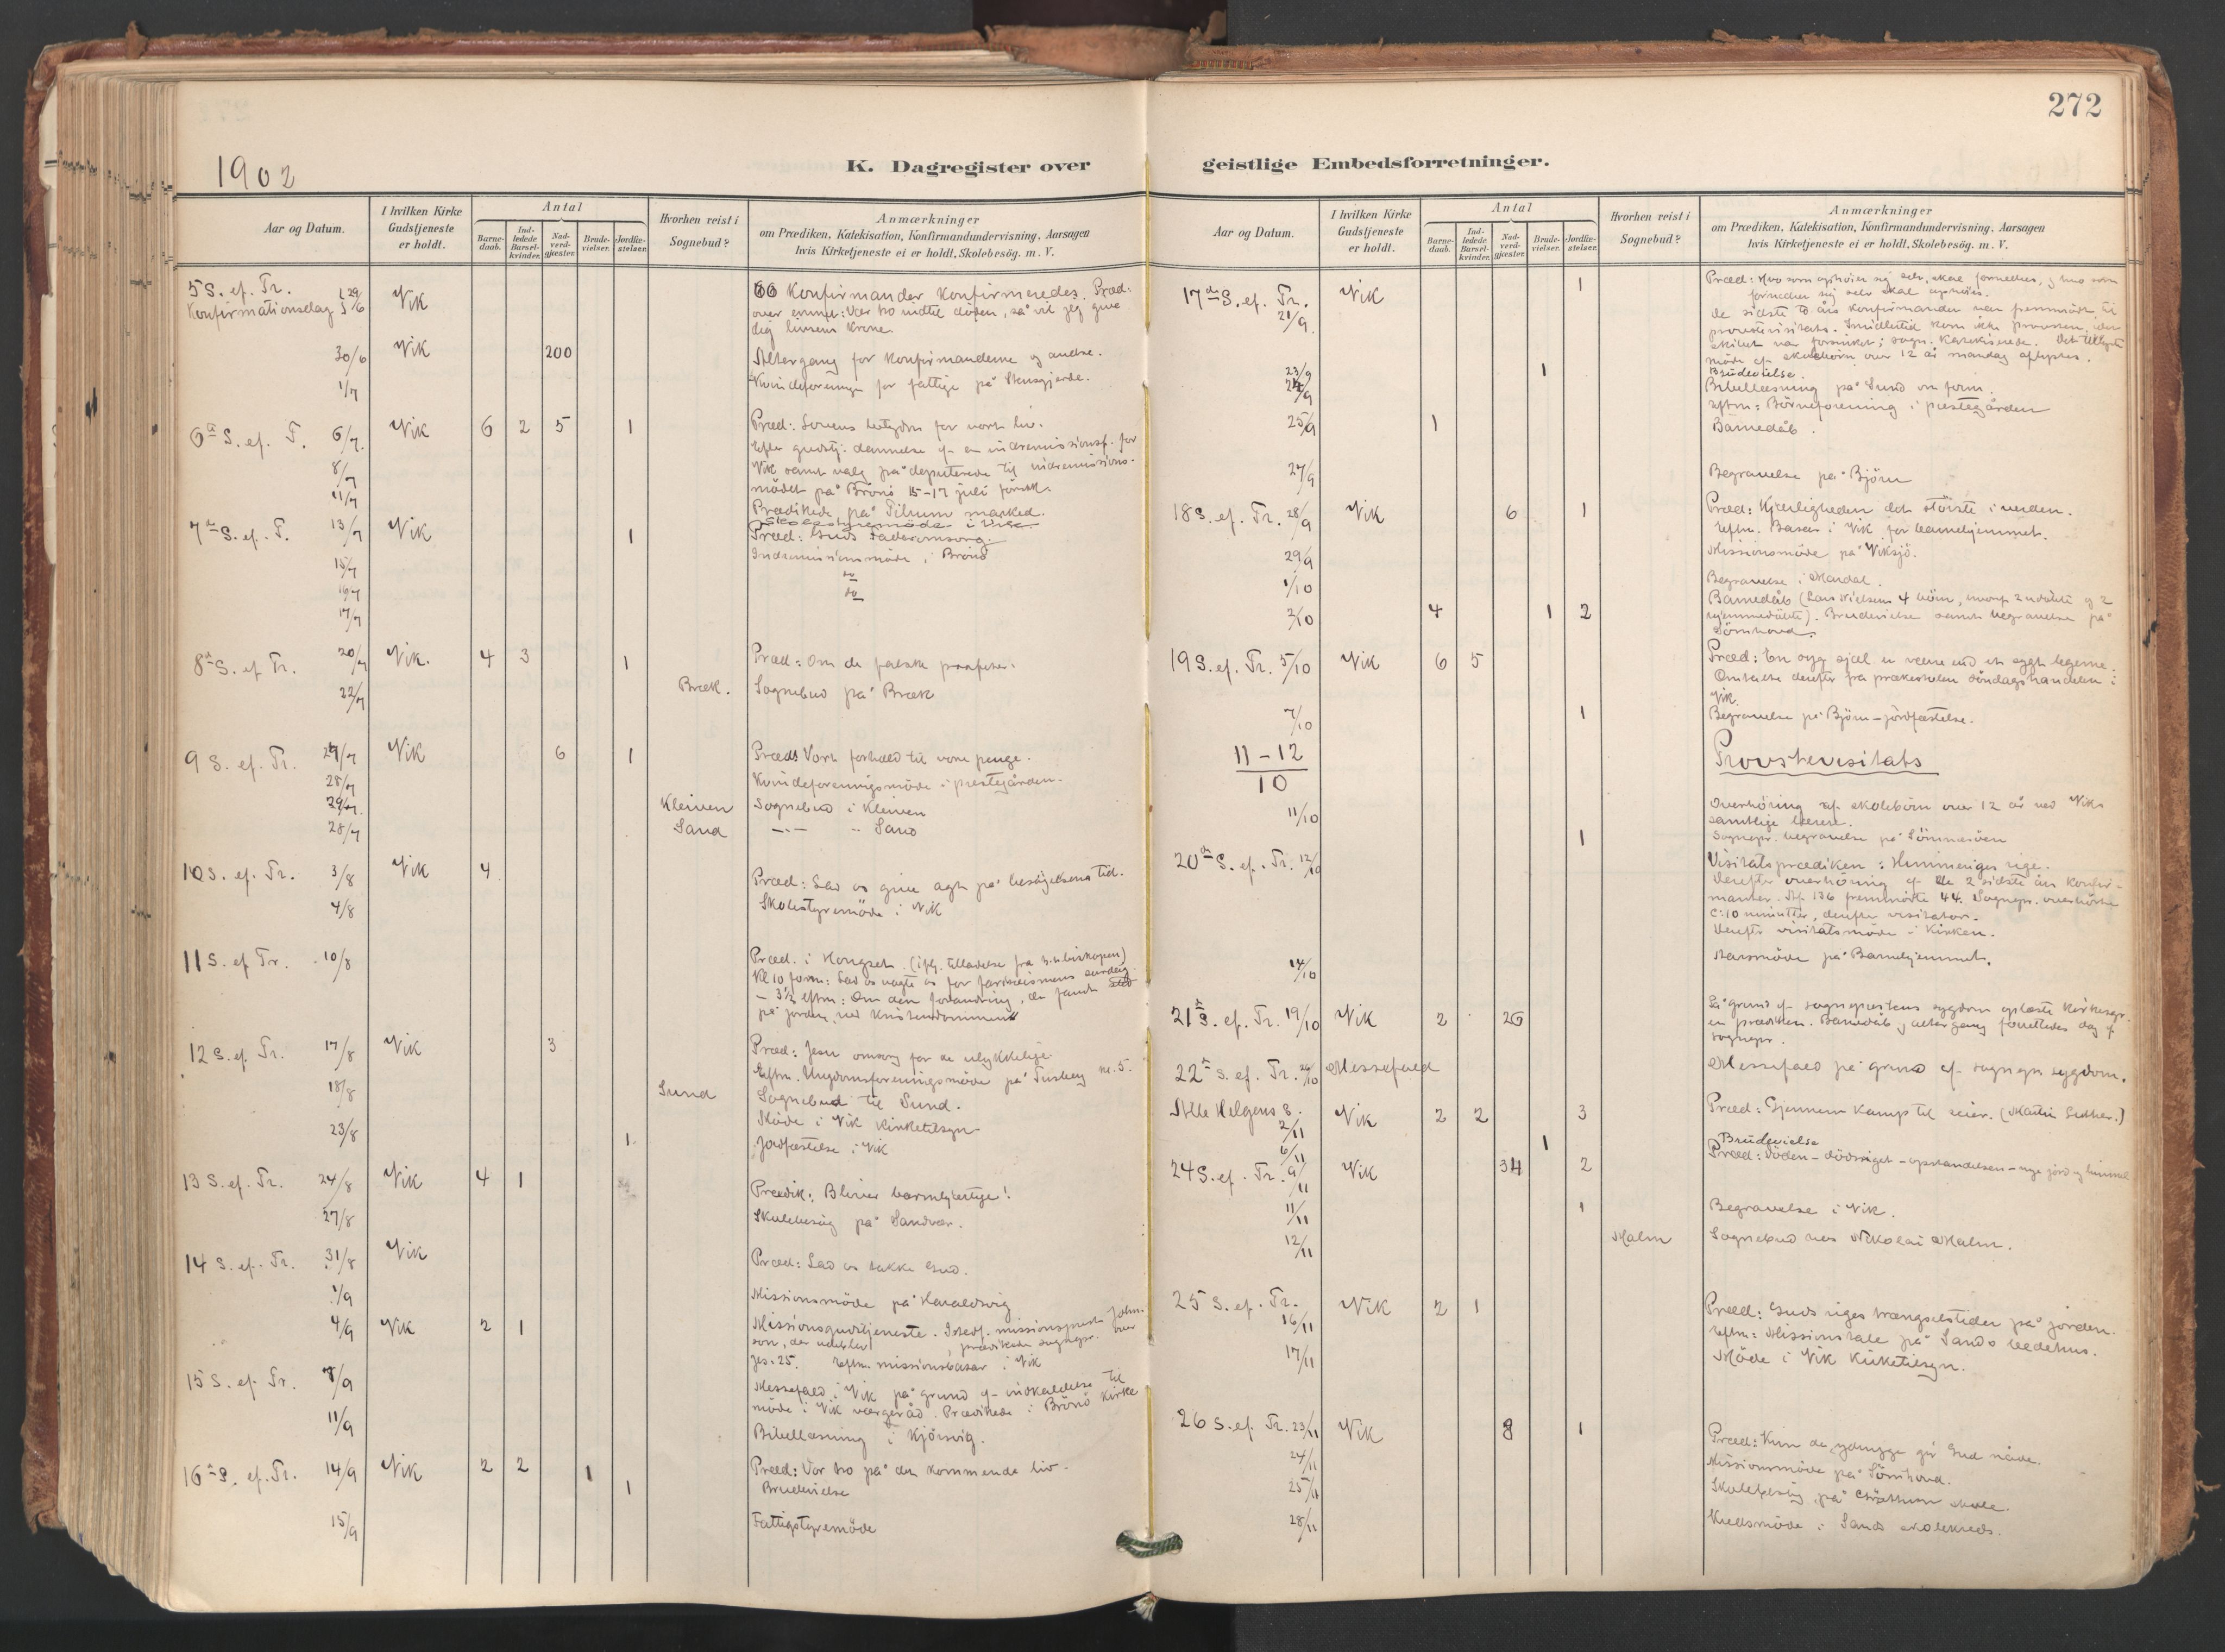 272
1902
K. Dagregister over geistlige Embedsforretninger.
Aar og Datum.
I hvilken Kirke Gudstjeneste er holdt.
Antal
Barnedaab.
Indledede Barselkvinder.
Nadverdgjæster.
Brudevielser.
Jordfæstelser.
Hvorhen reist i Sognebud?
Anmærkninger
om Prædiken, Katekisation, Konfirmandundervisning, Aarsagen
hvis Kirketjeneste ei er holdt, Skolebesög. m. V.
5 S. ef. Tr. 29/6 Vik 66 Konfirmander Konfirmeredes. Præd:
Konfirmationsdag over emnet: Vær tro indtil döden, så vil jeg give
dig livsens Krone.
30/6 Vik 200 Altergang for Konfirmanderne og andre.
1/7 Kvindeforening for fattige på
6te S. ef. T. 6/7. Vik 6 2 5 1 Præd: Lovens betydn for vort liv.
Efter gudstj. dannelse af en indremissionsf. for
8/7 Vik samt valg på deputerede til indremissions-
mödet på Brönö 15-17 juli
11/7 Prædikede på Tilrum marked.
Skolestyremöde i Vik
7de S. ef. T. 13/7 Vik 1 Præd: Guds Faderomsorg.
15/7 Indremissionsmöde i Brönö
16/7 do
17/7 do
8de S. ef Tr. 20/7 Vik. 4 3 1 Præd: Om de falske profeter.
22/7 Bræk. Sognebud på Bræk
9 S. ef. Tr. 27/7 Vik 6 1 Præd: Vort forhold til vore penge.
28/7 Kvindeforeningsmöde i prestegården.
29/7. Kleiven Sognebud i Kleiven
28/7 Sand —"— " Sand
10 S. ef. Tr. 3/8 Vik 4 Præd: Lad os give agt på besögelsens tid.
4/8 Skolestyremöde i Vik
11 S. ef Tr. 10/8 Præd. i Hongset. (ifg. tilladelse fra biskopen)
Kl 10 form: Lad os vogte os for farisæismens surdeig.
— 3½ eftm: Om den forandring, der fandt sted
på jorden ved Kristendommen
12 S. ef. Tr. 17/8 Vik 3 Præd: Jesu omsorg for de ulykkelige.
Eftm. Ungdomsforeningsmöde på Tusberg kl. 5.
18/8 Sund Sognebud til Sund.
Möde i Vik Kirketilsyn
23/8 1. Jordfæstelse i Vik
13 S. ef. Tr. 24/8 Vik 4 1 Prædik: Bliver barmhjertige!
27/8 Skolebesög på Sandvær.
14 S. ef. Tr. 31/8 Vik Præd: Lad os takke Gud.
1/9 Missionsmöde på Haraldsvig
4/9 Vik 2 1 Missionsgudstjeneste. Istedf. missionsprest John-
son, der udeblev, prædikede sognepr. over
Jes. 25. Eftm. missionsbasar i Vik
15 S. ef. Tr. 7/9 Messefald i Vik på grund af indkaldelse til
möde i Vik værgeråd. Prædikede i Brönö Kirke
11/9 Bibellæsning i Kjörsvig.
16de S. ef. Tr. 14/9 Vik 2 2 1 Præd: Vor tro på det kommende liv.
1 Brudevielse
15/9 Fattigstyremöde
Aar og Datum.
I hvilken Kirke Gudstjeneste er holdt.
Antal
Barnedaab.
Indledede Barselkvinder.
Nadverdgjæster.
Brudevielser.
Jordfæstelser.
Hvorhen reist i Sognebud?
Anmærkninger
om Prædiken, Katekisation, Konfirmandundervisning, Aarsagen
hvis Kirketjeneste ei er holdt, Skolebesög. m. V.
17de S. ef. Tr. 21/9. Vik 1 Præd: Hvo som ophöier sig selv, skal fornedres, og hvo som
fornedrer sig selv skal ophöies.
de sidste to års Konfirmander var fremmödt til
provstevisitats. Imidlertid kom ikke provsten, idet
skibet var forsinket; sogn. Katekiserede. Det tillyste
möde af skolebörn over 12 år mandag aflystes.
23/9 1 Brudevielse.
24/9 Bibellæsning på Sund om form.
Eftm: Börneforening i prestegården
25/9 1 Barnedåb.
27/9 Begravelse på Björn
18 S. ef. Tr. 28/9 Vik 6 1 Præd: Kjærligheden det störste i verden.
Eftm. Basar i Vik for barnehjemmet.
29/9 Missionsmöde på Viksjö.
1/10 Begravelse i Mardal.
2/10 4 1 2 Barnedåb (Lars Nielsens 4 börn, hvoraf 2 udöbte og 2
hjemmedöbte). Brudevielse samt begravelse på
Sörnhoved.
19 S. ef. Tr. 5/10 Vik 6 5 Præd: En syg sjæl er værre end et sygt legeme.
Omtalte derefter fra prækestolen söndagshandelen i
Vik.
7/10 1 Begravelse på Björn - jordfæstelse.
11-12/10 Provstevisitats
11/10 Overhöring af skolebörn over 12 år ved Viks
samtlige lærere.
1 Sognepr. begravelse på Sömnesöen
20de S. ef. Tr. 12/10 Visitatsprædiken: Himmeriges rige.
Derefter overhöring af de 2 sidste års Konfir-
manter. Af 136 fremmödte 44. Sognepr. overhörte
c: 10 minutter, derefter visitator.
Derefter visitatsmöde i Kirken.
14/10 Aarsmöde på Barnehjemmet.
21de S. ef. Tr. 19/10 Vik 2 26 På grund af sogneprestens sygdom oplæste Kirkesgr.
en prædiken. Barnedåb og altergang forrettedes dog af
sognepr.
22de S. ef. Tr. 26/10 Messefald Messefald på grund af sognepr. sygdom.
Alle Helgens S. 2/11 Vik 2 2 3 Præd: Gjennem Kamp til seier. (Martin Luther.)
6/11 1 Brudevielse
24 S. ef. Tr. 9/11 Vik 34 2 Præd: Döden - dödsriget - opstandelsen - nye jord og himmel
11/11 1 Begravelse i Vik.
12/11 Malm Sognebud hos Nikolai Malm.
25 S. ef. Tr. 16/11 Vik 2 1 Præd: Guds riges trængselstider på jorden.
Eftm: Missionstale på Sands bedehus.
17/11 Möde i Vik Kirketilsyn.
26 S. ef. Tr. 23/11 Vik 8 1 Præd: Kun de ydmyge gir Gud nåde.
24/11 Missionsmöde på Sörnhoved.
25/11 Skolebesög på skole.
28/11 Kredsmöde i Sands skolekreds.